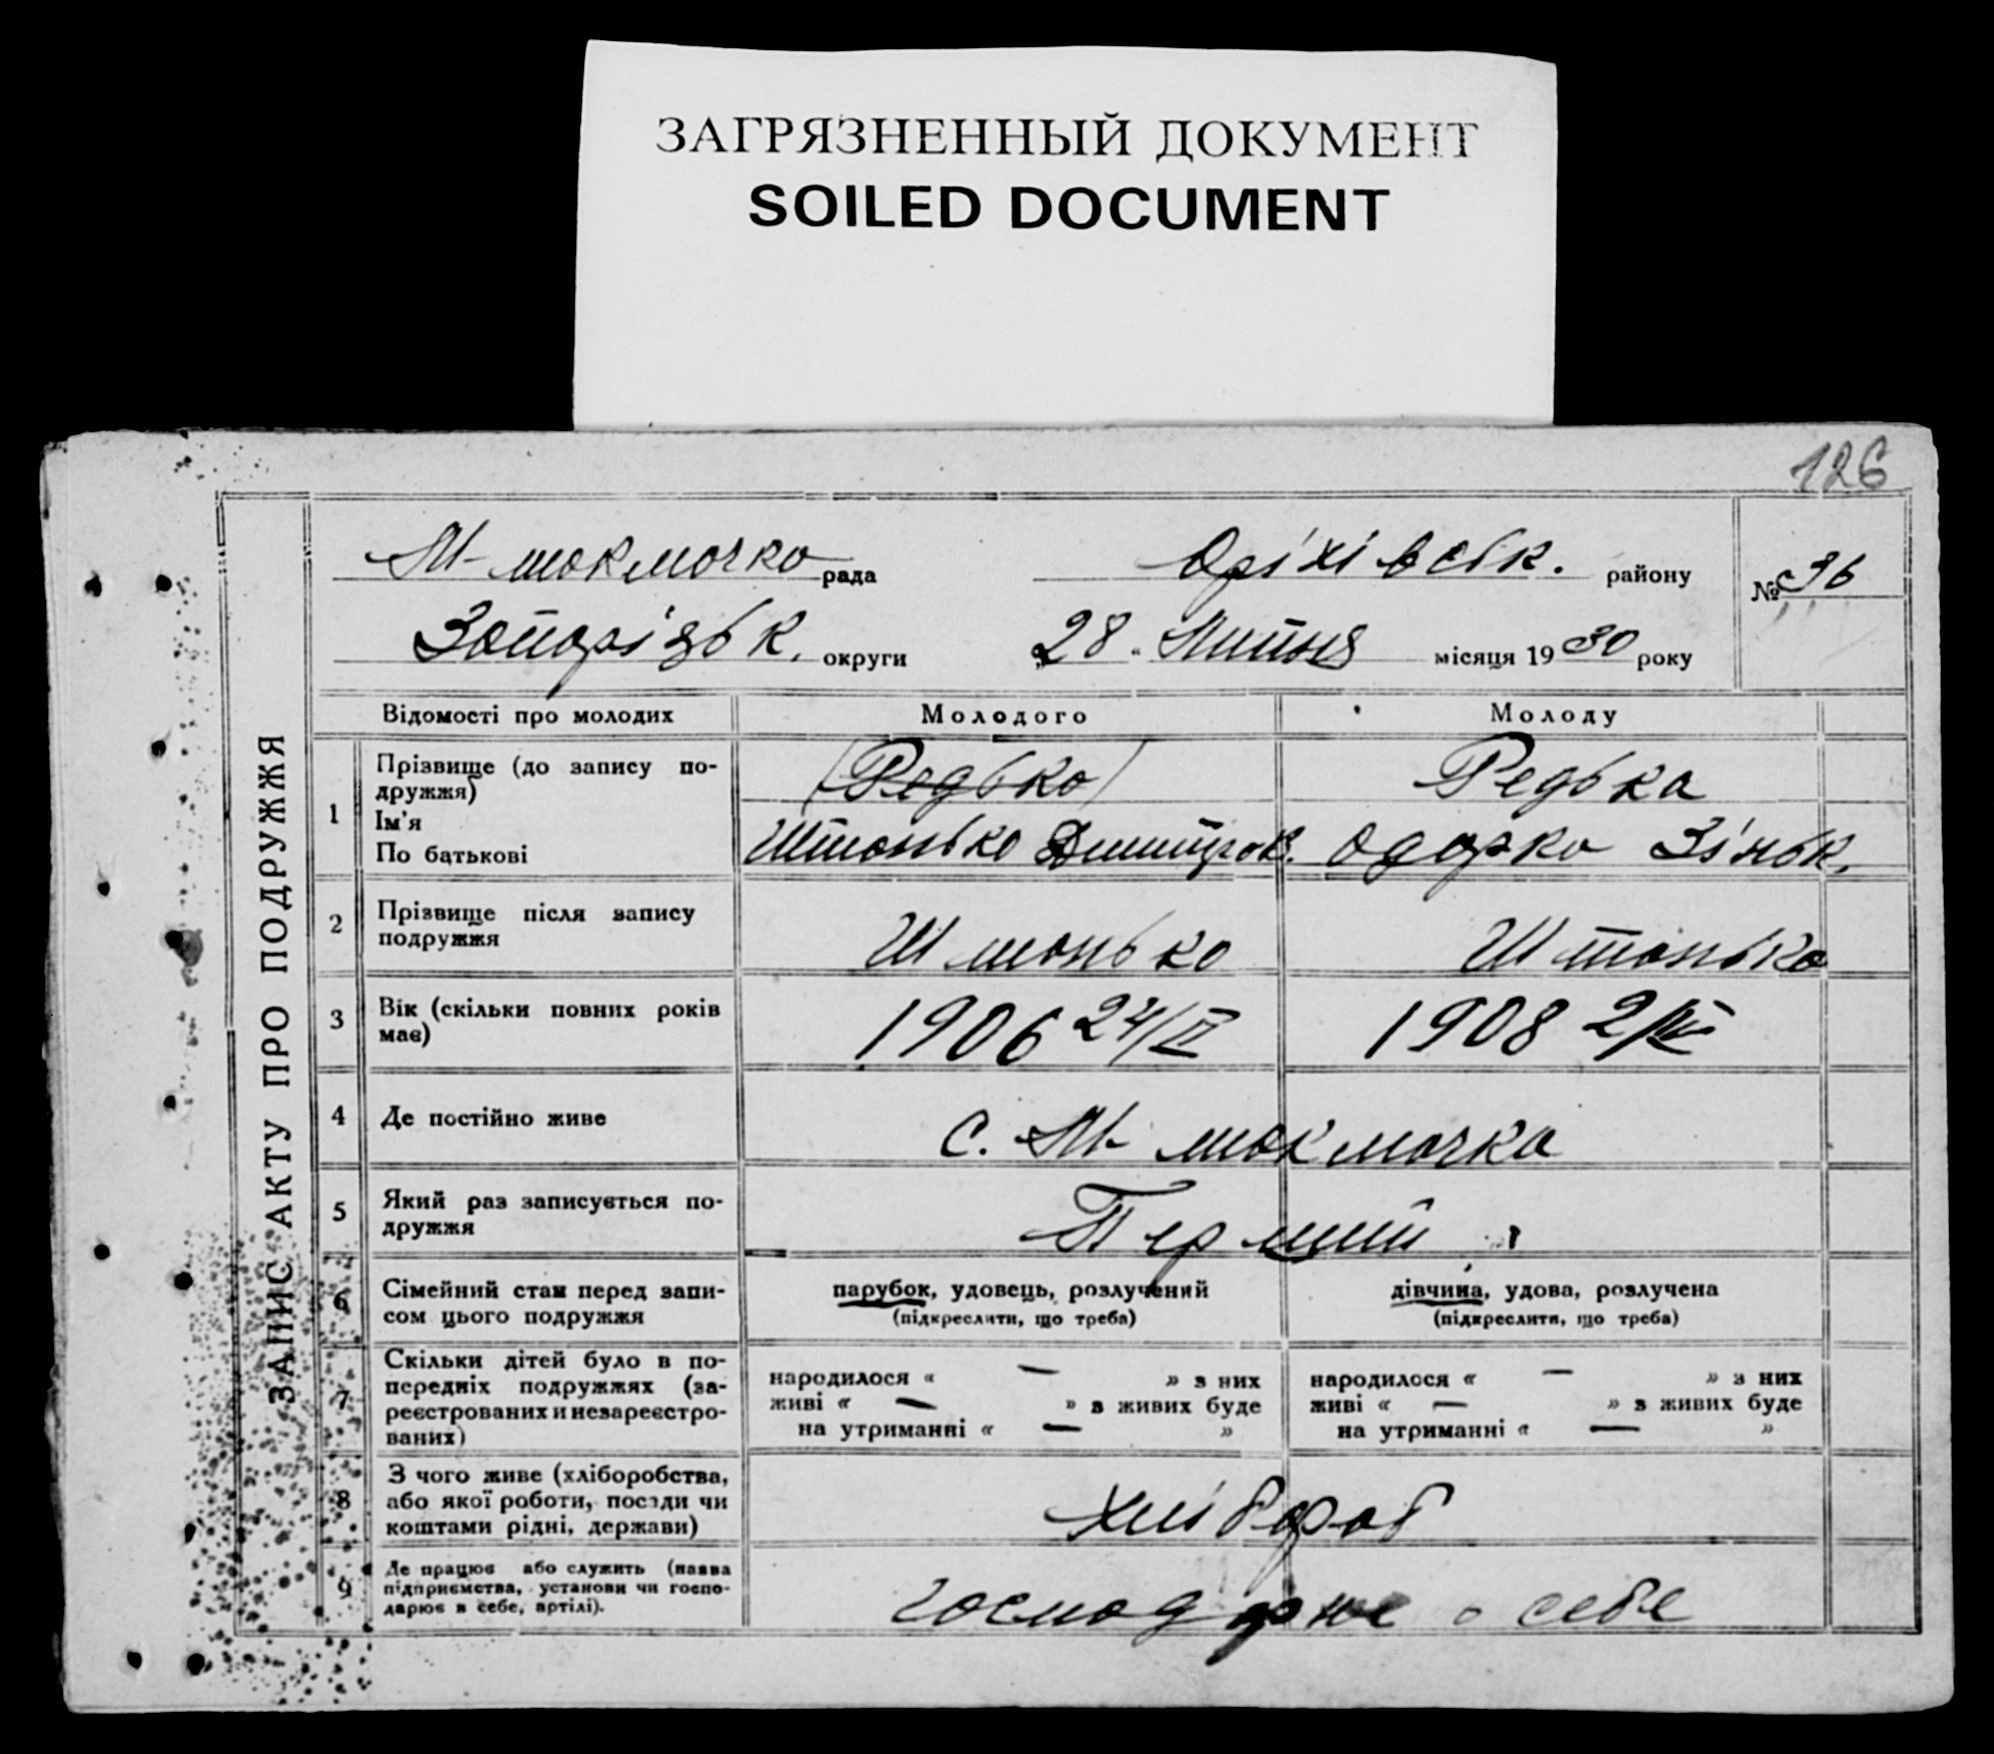 ЗАГРЯЗНЕННЫЙ ДОКУМЕНТ
SOILED DOCUMENT
126
ЗАПИС АКТУ ПРО ПОДРУЖЖЯ
М-токмачка рада Оріхівськ. району № 36
Запорізьк. округи „28“ Липня місяця 1930 року
Відомості про молодих Молодого Молоду
1 Прізвище (до запису по-дружжя) (Редько) Редька
Ім'я
По батькові Штонько Дмитро К. Одарка Зіньк.
2 Прізвище після запису подружжя Штонько Штонько
3 Вік (скільки повних років має) 1906 24/II 1908 2/IV
4 Де постійно живе с. М-токмачка
5 Який раз записується по-дружжя Перший
6 Сімейний стан перед запи-сом цього подружжя парубок, удовець, розлучений дівчина, удова, розлучена
(підкреслити, що треба) (підкреслити, що треба)
7 Скільки дітей було в по-передніх подружжях (за-реєстрованих и незареєстро-ваних)
народилося « — » з них народилося « — » з них
живі « — » з живих буде живі « — » з живих буде
на утриманні « — » на утриманні « — »
8 З чого живе (хліборобства, або якої роботи, посади чи коштами рідні, держави) Хлібороб
9 Де працює або служить (назва підприємства, установи чи госпо-дарює в себе, артілі). господарює в себе